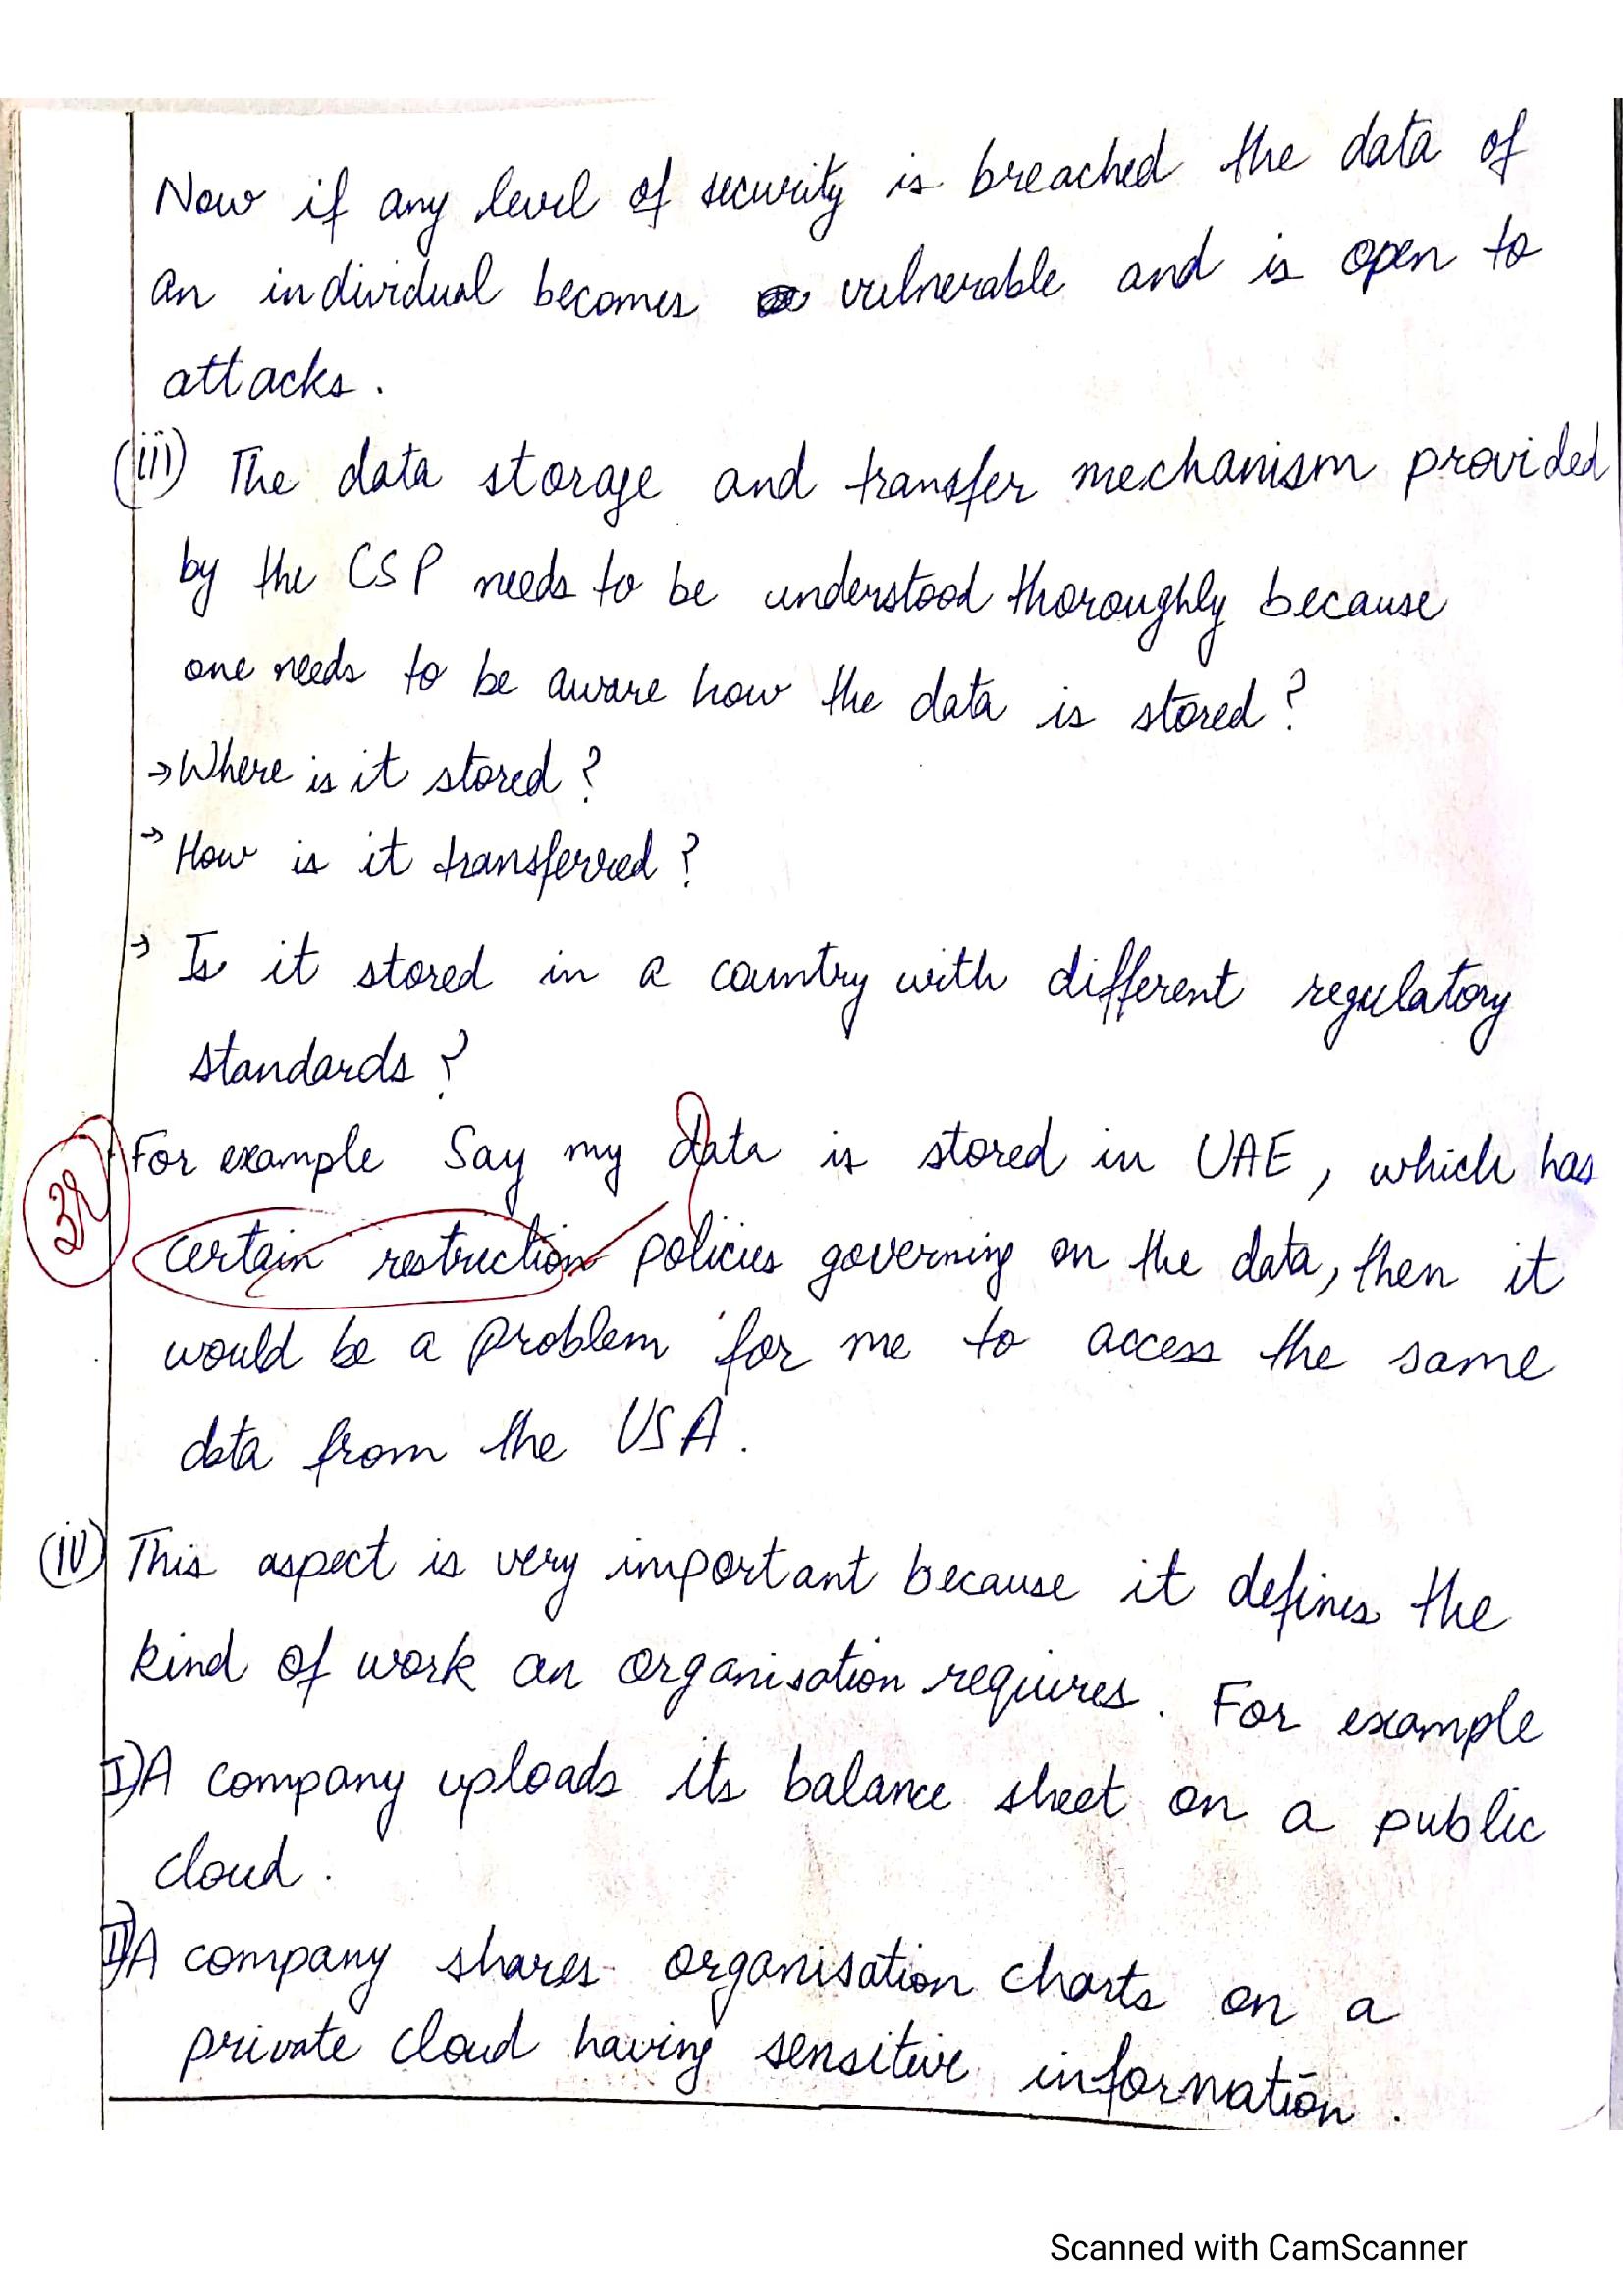 Now if any level of security is breached the data of
an individual becomes vulnerable and is open to
attacks.
(iii) The data storage and transfer mechanism provided
by the CSP needs to be understood thoroughly because
one needs to be aware how the data is stored?
→ Where is it stored?
→ How is it transferred?
→ Is it stored in a country with different regulatory
standards?
For example Say my data is stored in UAE, which has
certain restruction policies governing on the data, then it
would be a problem for me to access the same
data from the USA.
(iv) This aspect is very important because it defines the
kind of work an organisation requires. For example
I) A company uploads its balance sheet on a public
cloud.
II) A company shares organisation charts on a
private cloud having sensitive information.
Scanned with CamScanner